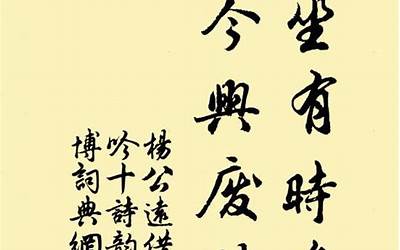 坐有時
今興廢
楊公遠借
吟十詩韵
博詞典網